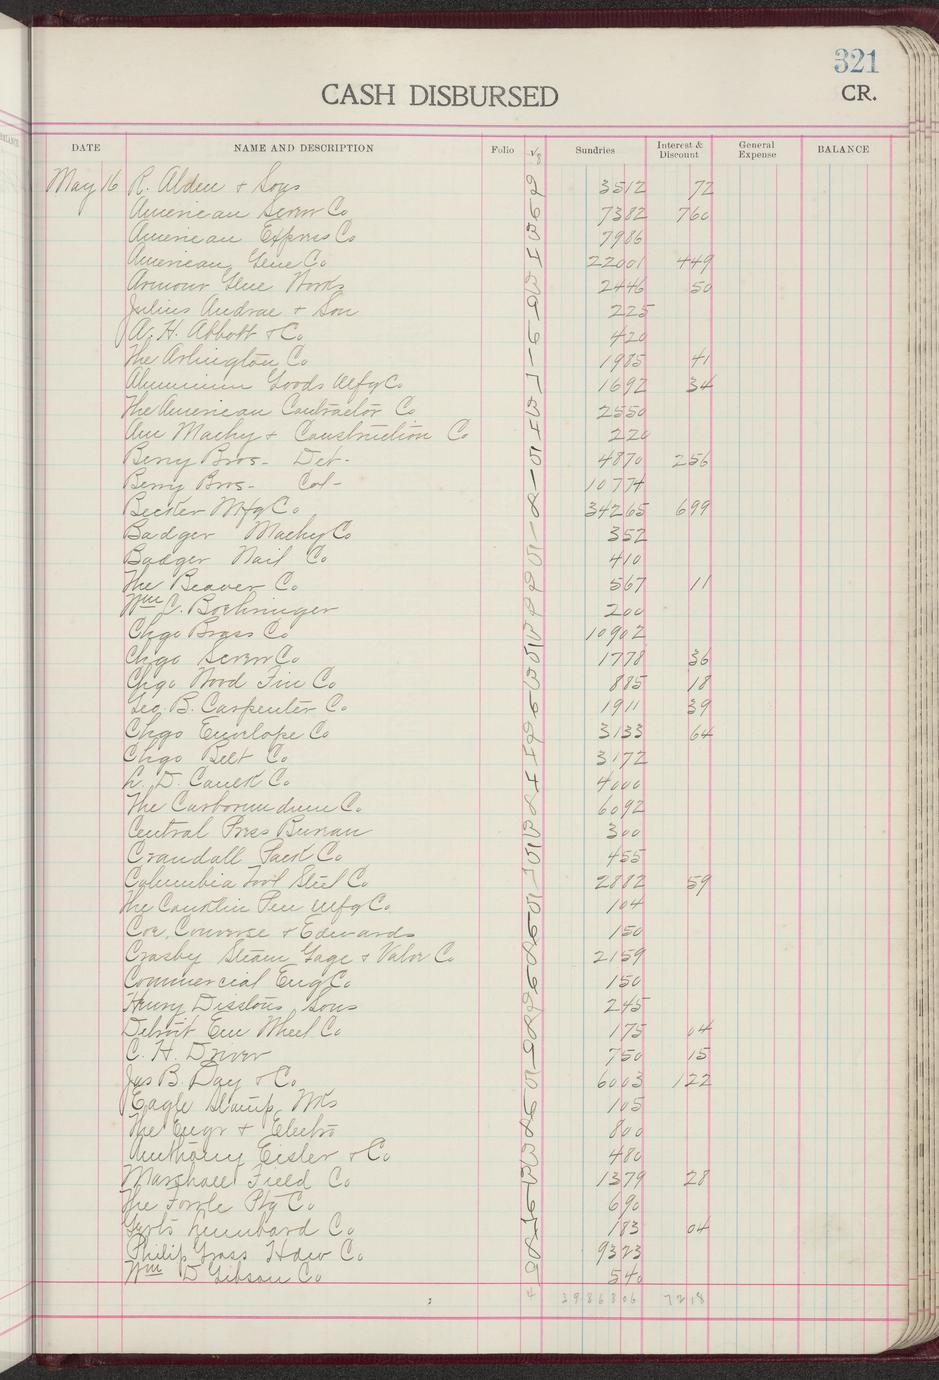 321
CASH DISBURSED
CR.
DATE NAME AND DESCRIPTION Folio Sundries Interest & Discount General Expense BALANCE
May 16 R. Alden & Sons 3512 72
American Screw Co 7382 760
American Express Co 7986
American Glue Co 22001 449
Armour Glue Works 2446 50
Julius Andrae & Son 225
A. H. Abbott & Co 420
The Arlington Co 1985 41
Aluminum Goods Mfg Co 1692 34
The American Contractor Co 2550
Am Machy & Construction Co 220
Berry Bros - Det - 4870 256
Berry Bros - Col - 10774
Becker Mfg Co 34265 699
Badger Machy Co 352
Badger Nail Co 410
The Beaver Co 567 11
Wm C. Boehringer 200
Chgo Brass Co 10902
Chgo Screw Co 1778 36
Chgo Wood Fin Co 885 18
Geo. B. Carpenter Co 1911 39
Chgo Envelope Co 3133 64
Chgo Belt Co 3172
L. D. Caulk Co 4000
The Carborundum Co 6092
Central Press Bureau 300
Crandall Pack Co 455
Columbia Tool Steel Co 2882 59
The Conklin Pen Mfg Co 104
Coe, Converse & Edwards 150
Crosby Steam Gage & Valve Co 2159
Commercial Eng Co 150
Henry Disstons Sons 245
Detroit Em Wheel Co 175 04
C. H. Driver 750 15
Jas B. Day & Co 6003 122
Eagle Stamp Wks 105
The Engr & Electro 800
Anthony Eisler & Co 480
Marshall Field Co 1379 28
The Fowle Ptg Co 690
Lumbard Co 183 04
Philip Gross Hdw Co 9323
Wm D Gibson Co 540
7218